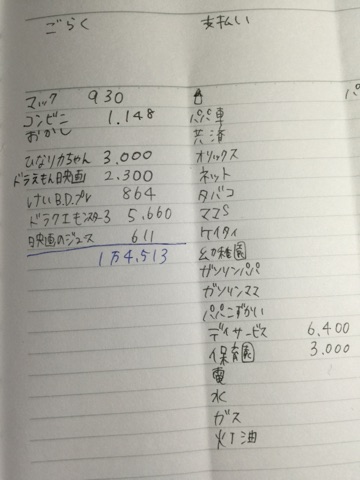 ごらく
マック 930
コンビニ 1.148
おかし
ひなリカちゃん 3.000
ドラえもん映画 2.300
けいB.D.プレ 864
ドラクエモンスターズ 5.660
映画のジュース 611
1万4.513
支払い
パパ車
共済
オリックス
ネット
タバコ
ケイタイ
幼稚園
ガソリンパパ
ガソリンママ
パパこずかい
デイサービス 6.400
保育園 3.000
電
水
ガス
灯油
パ